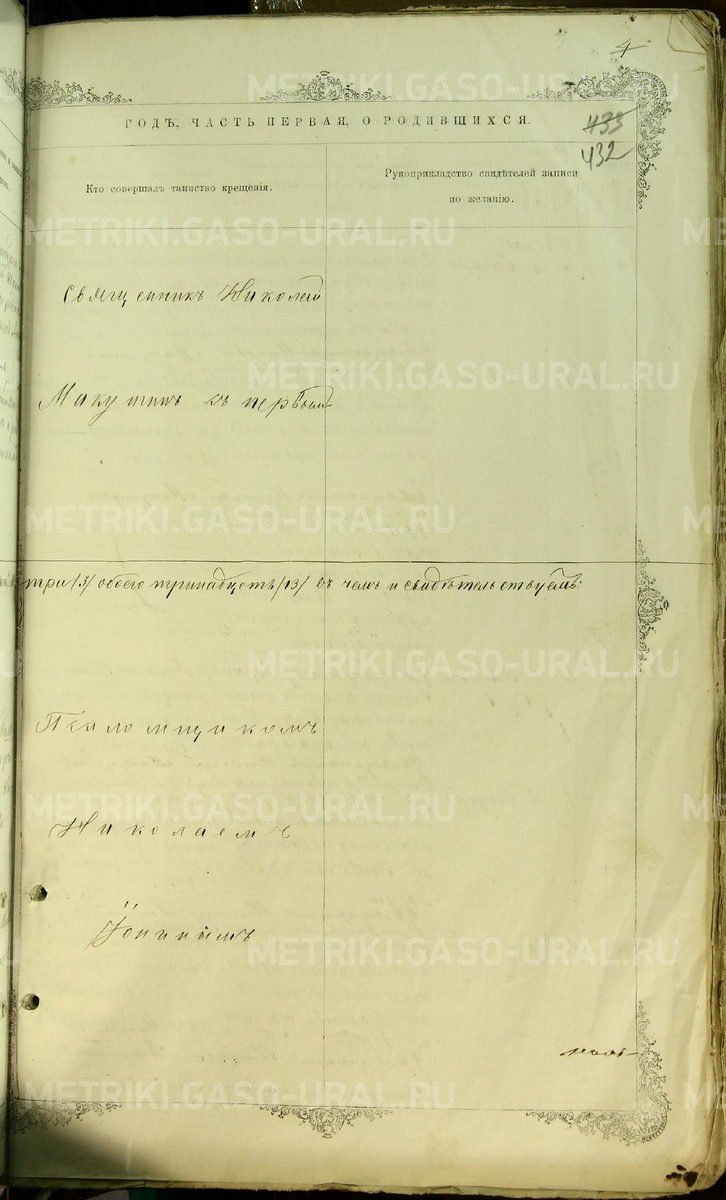 4
ГОДЪ, ЧАСТЬ ПЕРВАЯ, О РОДИВШИХСЯ.
433
432
Кто совершалъ таинство крещенія.
Рукоприкладство свидѣтелей записи
по желанію.
Священникъ Николай
Макушинъ съ первымъ
три /3/ обоего тринадцать /13/ въ чемъ и свидѣтельствуемъ:
Псаломщикомъ
Николаемъ
Іонинымъ
METRIKI.GASO-URAL.RU